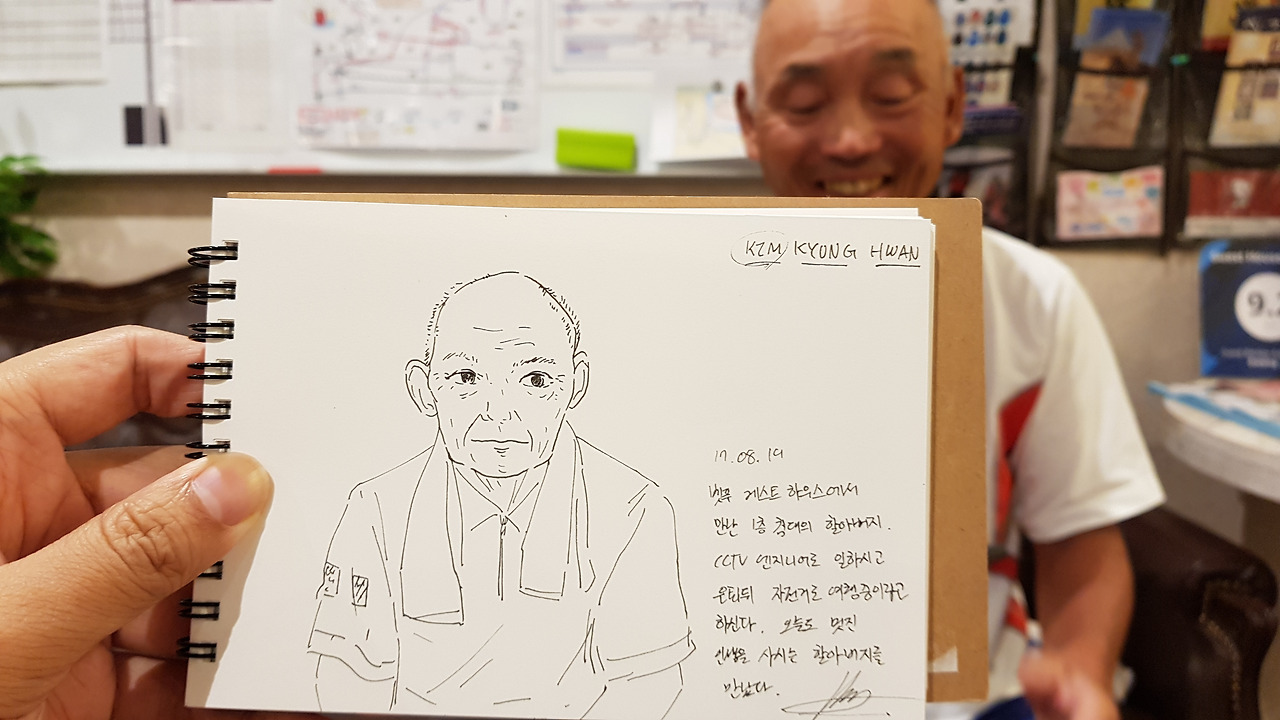 KIM KYONG HWAN
17.08.19
게스트 하우스에서
만난 1층 침대의 할아버지.
CCTV 엔지니어로 일하시고
은퇴뒤 자전거로 여행중이라고
하신다. 오늘도 멋진
인생을 사시는 할아버지를
만났다.
9.